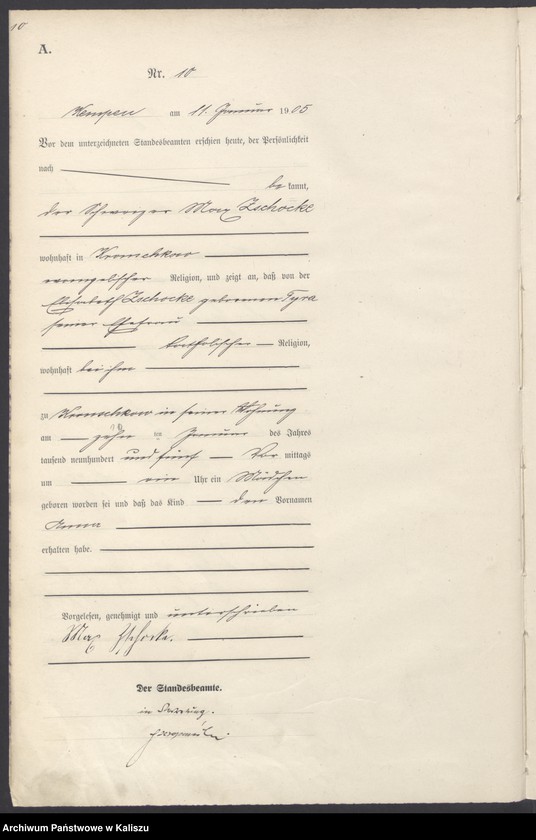 10
A.
Nr. 10
Kempen am 11. Januar 1905
Vor dem unterzeichneten Standesbeamten erschien heute, der Persönlichkeit
nach
bekannt,
der Max Zschocke
wohnhaft in
evangelischer Religion, und zeigt an, daß von der
Elisabeth Zschocke geborenen Tyra
seiner Ehefrau
katholischer Religion,
wohnhaft bei ihm
zu in seiner Wohnung
am zehn ten Januar des Jahres
tausend neunhundert und fünf Vor mittags
um ein Uhr ein Mädchen
geboren worden sei und daß das Kind den Vornamen
Anna
erhalten habe.
Vorgelesen, genehmigt und unterschrieben
Max Zschocke.
Der Standesbeamte.
in Vertretung.
Archiwum Państwowe w Kaliszu